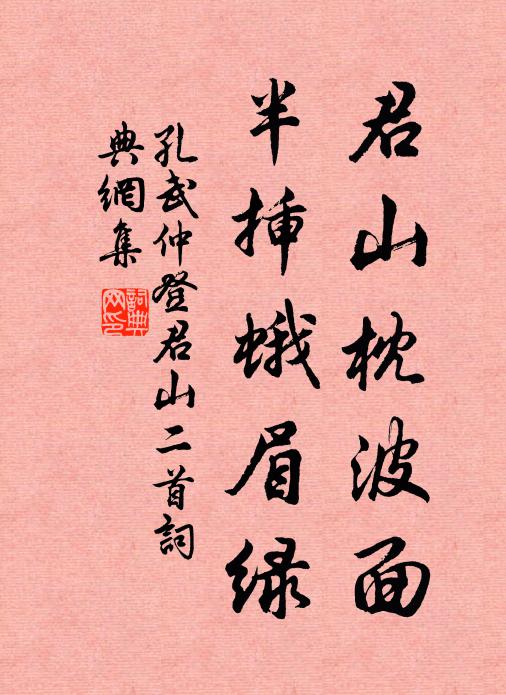 君山枕波面
半揷蛾眉绿
孔武仲登君山二首詞
典網集
詞典网印